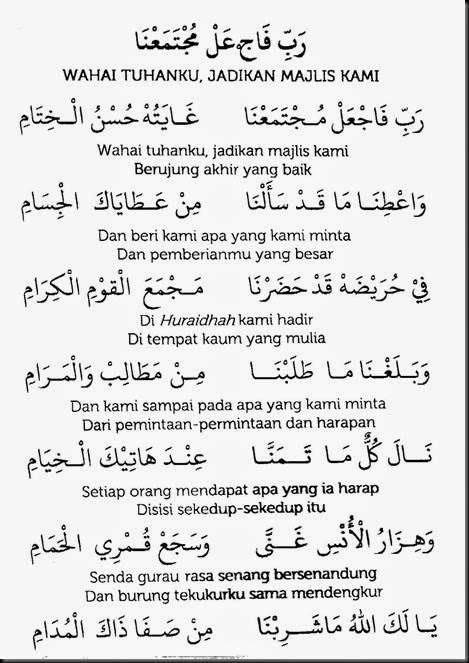 رَبِّ فَاجْعَلْ مُجْتَمَعْنَا
WAHAI TUHANKU, JADIKAN MAJLIS KAMI
رَبِّ فَاجْعَلْ مُجْتَمَعْنَا غَايَتُهْ حُسْنُ الْخِتَامِ
Wahai tuhanku, jadikan majlis kami
Berujung akhir yang baik
وَاعْطِنَا مَا قَدْ سَأَلْنَا مِنْ عَطَايَاكَ الْجِسَامِ
Dan beri kami apa yang kami minta
Dan pemberianmu yang besar
فِيْ حُرَيْضَهْ قَدْ حَضَرْنَا مَجْمَعَ الْقَوْمِ الْكِرَامِ
Di Huraidhah kami hadir
Di tempat kaum yang mulia
وَبَلَغْنَا مَا طَلَبْنَا مِنْ مَطَالِبْ وَالْمَرَامِ
Dan kami sampai pada apa yang kami minta
Dari pemintaan-permintaan dan harapan
نَالَ كُلٌّ مَا تَمَنَّا عِنْدَ هَاتِيْكَ الْخِيَامِ
Setiap orang mendapat apa yang ia harap
Disisi sekedup-sekedup itu
وَهِزَارُ الْأُنْسِ غَنَّى وَسَجَعْ قُمْرِي الْحَمَامِ
Senda gurau rasa senang bersenandung
Dan burung tekukurku sama mendengkur
يَا لَكَ اللهُ مَاشَرِبْنَا مِنْ صَفَا ذَاكَ الْمُدَامِ